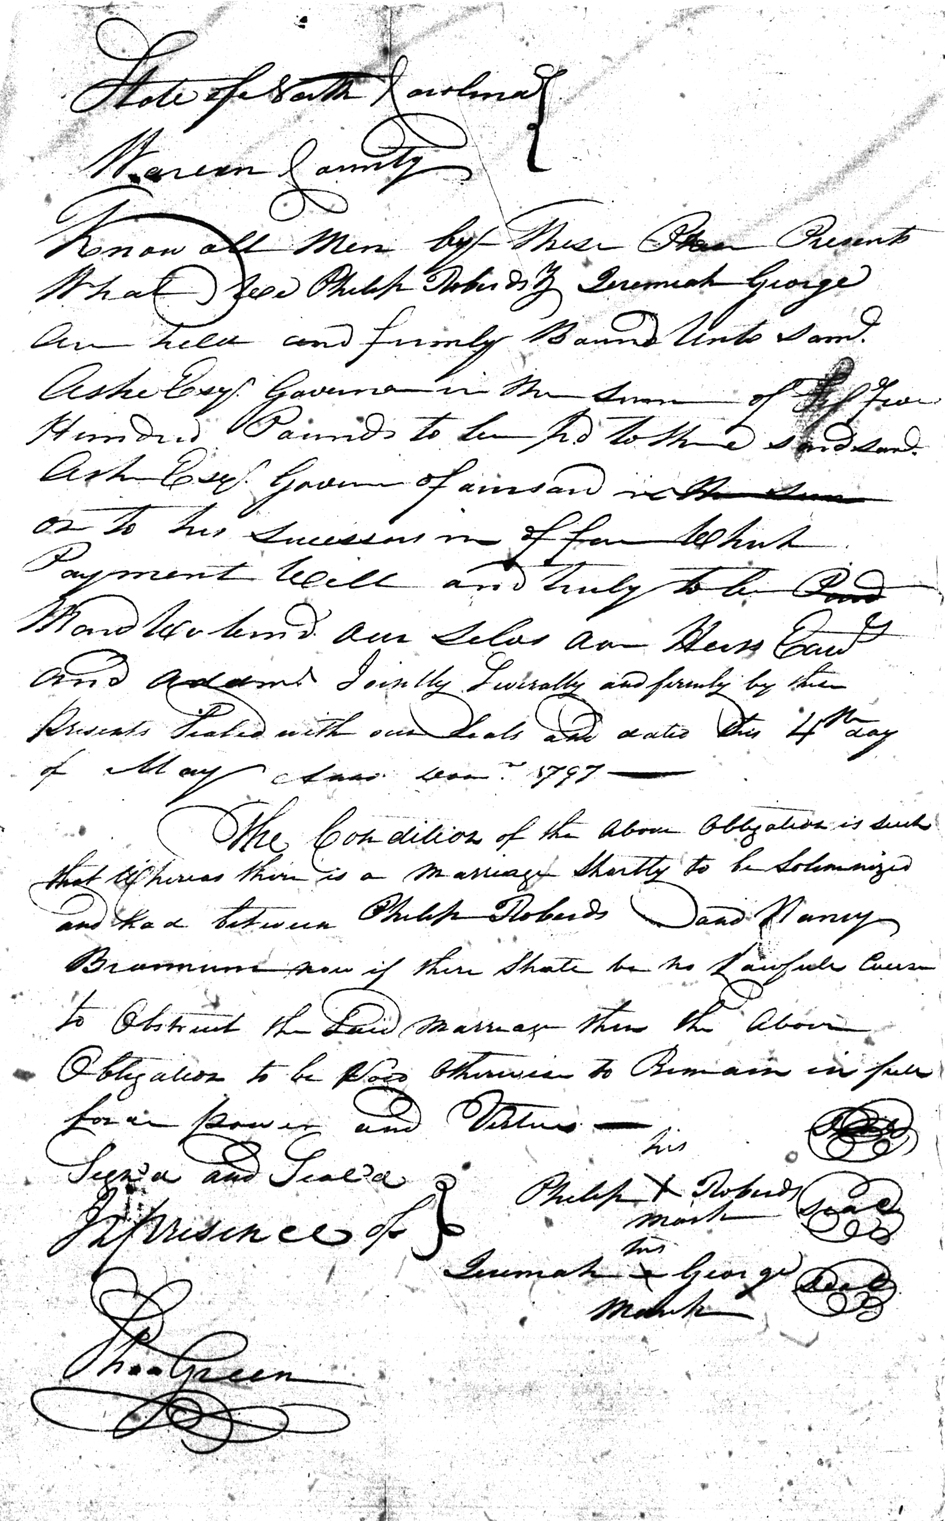 State of North Carolina
Warren County
Know all Men by These Presents
What We Philip Roberds & Jeremiah George
are held and firmly Bound Unto Saml.
Ashe Esqr. Governor in the sum of Five
Hundred Pounds to be Pd to the said Saml.
Ashe Esqr. Govenor Aforsaid in the sum
or to his Sucessors in office Which
Payment Well and truly to be Paid
Mand We bind our Selves our Heirs Exrs
and Adams Jointly Severally and firmly by these
presents Sealed with our Seals and dated this 4th day
of May Anno Dom. 1797
The Condition of the above Obligation is such
that Whereas there is a Marriage Shortly to be Solemnized
and had between Philip Roberds and Nancy
Brannum now if there Shall be no Lawfull Cause
to Obstruct the Said Marriage then the Above
Obligation to be Void Otherwise to Remain in full
force power and Virtue
Sign'd and Seal'd
In presence of
his
Philip X Roberds Seal
mark
his
Jeremiah X George Seal
Mark
Tho. Green